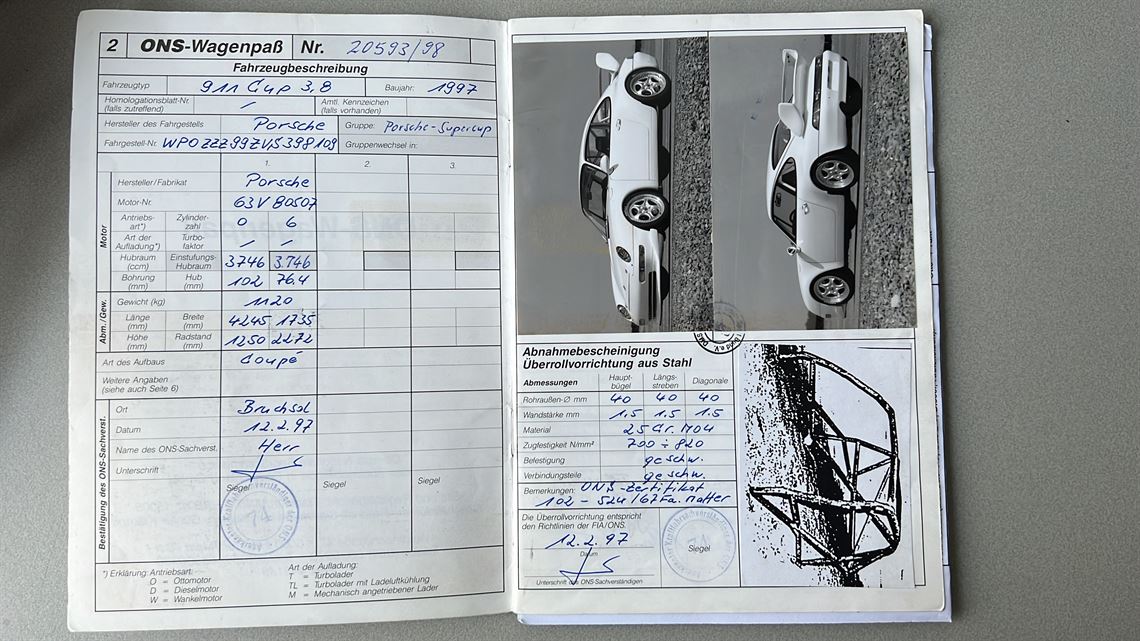 2 ONS-Wagenpaß Nr. 20593/98
Fahrzeugbeschreibung
Fahrzeugtyp 911 Cup 3,8 Baujahr: 1997
Homologationsblatt-Nr. (falls zutreffend) / Amtl. Kennzeichen (falls vorhanden)
Hersteller des Fahrgestells Porsche Gruppe: Porsche-Supercup
Fahrgestell-Nr. WPOZZZ99ZVS398109 Gruppenwechsel in:
1. 2. 3.
Motor
Hersteller/Fabrikat Porsche
Motor-Nr. 63V80507
Antriebsart*) Zylinderzahl O 6
Art der Aufladung*) Turbofaktor / /
Hubraum (ccm) Einstufungs-Hubraum 3746 3.746
Bohrung (mm) Hub (mm) 102 76.4
Abm./Gew.
Gewicht (kg) 1120
Länge (mm) Breite (mm) 4245 1735
Höhe (mm) Radstand (mm) 1250 2272
Art des Aufbaus Coupé
Weitere Angaben (siehe auch Seite 6)
Bestätigung des ONS-Sachverst.
Ort Bruchsal
Datum 12.2.97
Name des ONS-Sachverst. Herr
Unterschrift
Siegel Siegel Siegel
*) Erklärung: Antriebsart:
O = Ottomotor
D = Dieselmotor
W = Wankelmotor
Art der Aufladung:
T = Turbolader
TL = Turbolader mit Ladeluftkühlung
M = Mechanisch angetriebener Lader
Abnahmebescheinigung
Überrollvorrichtung aus Stahl
Abmessungen Haupt-bügel Längs-streben Diagonale
Rohraußen-Ø mm 40 40 40
Wandstärke mm 1.5 1.5 1.5
Material 25 Cr. MO4
Zugfestigkeit N/mm² 700 ÷ 820
Befestigung geschw.
Verbindungsteile geschw.
Bemerkungen: ONS-Zertifikat
102-524/67 Fa. Matter
Die Überrollvorrichtung entspricht
den Richtlinien der FIA/ONS.
12.2.97
Datum
Siegel
Unterschrift des ONS-Sachverständigen